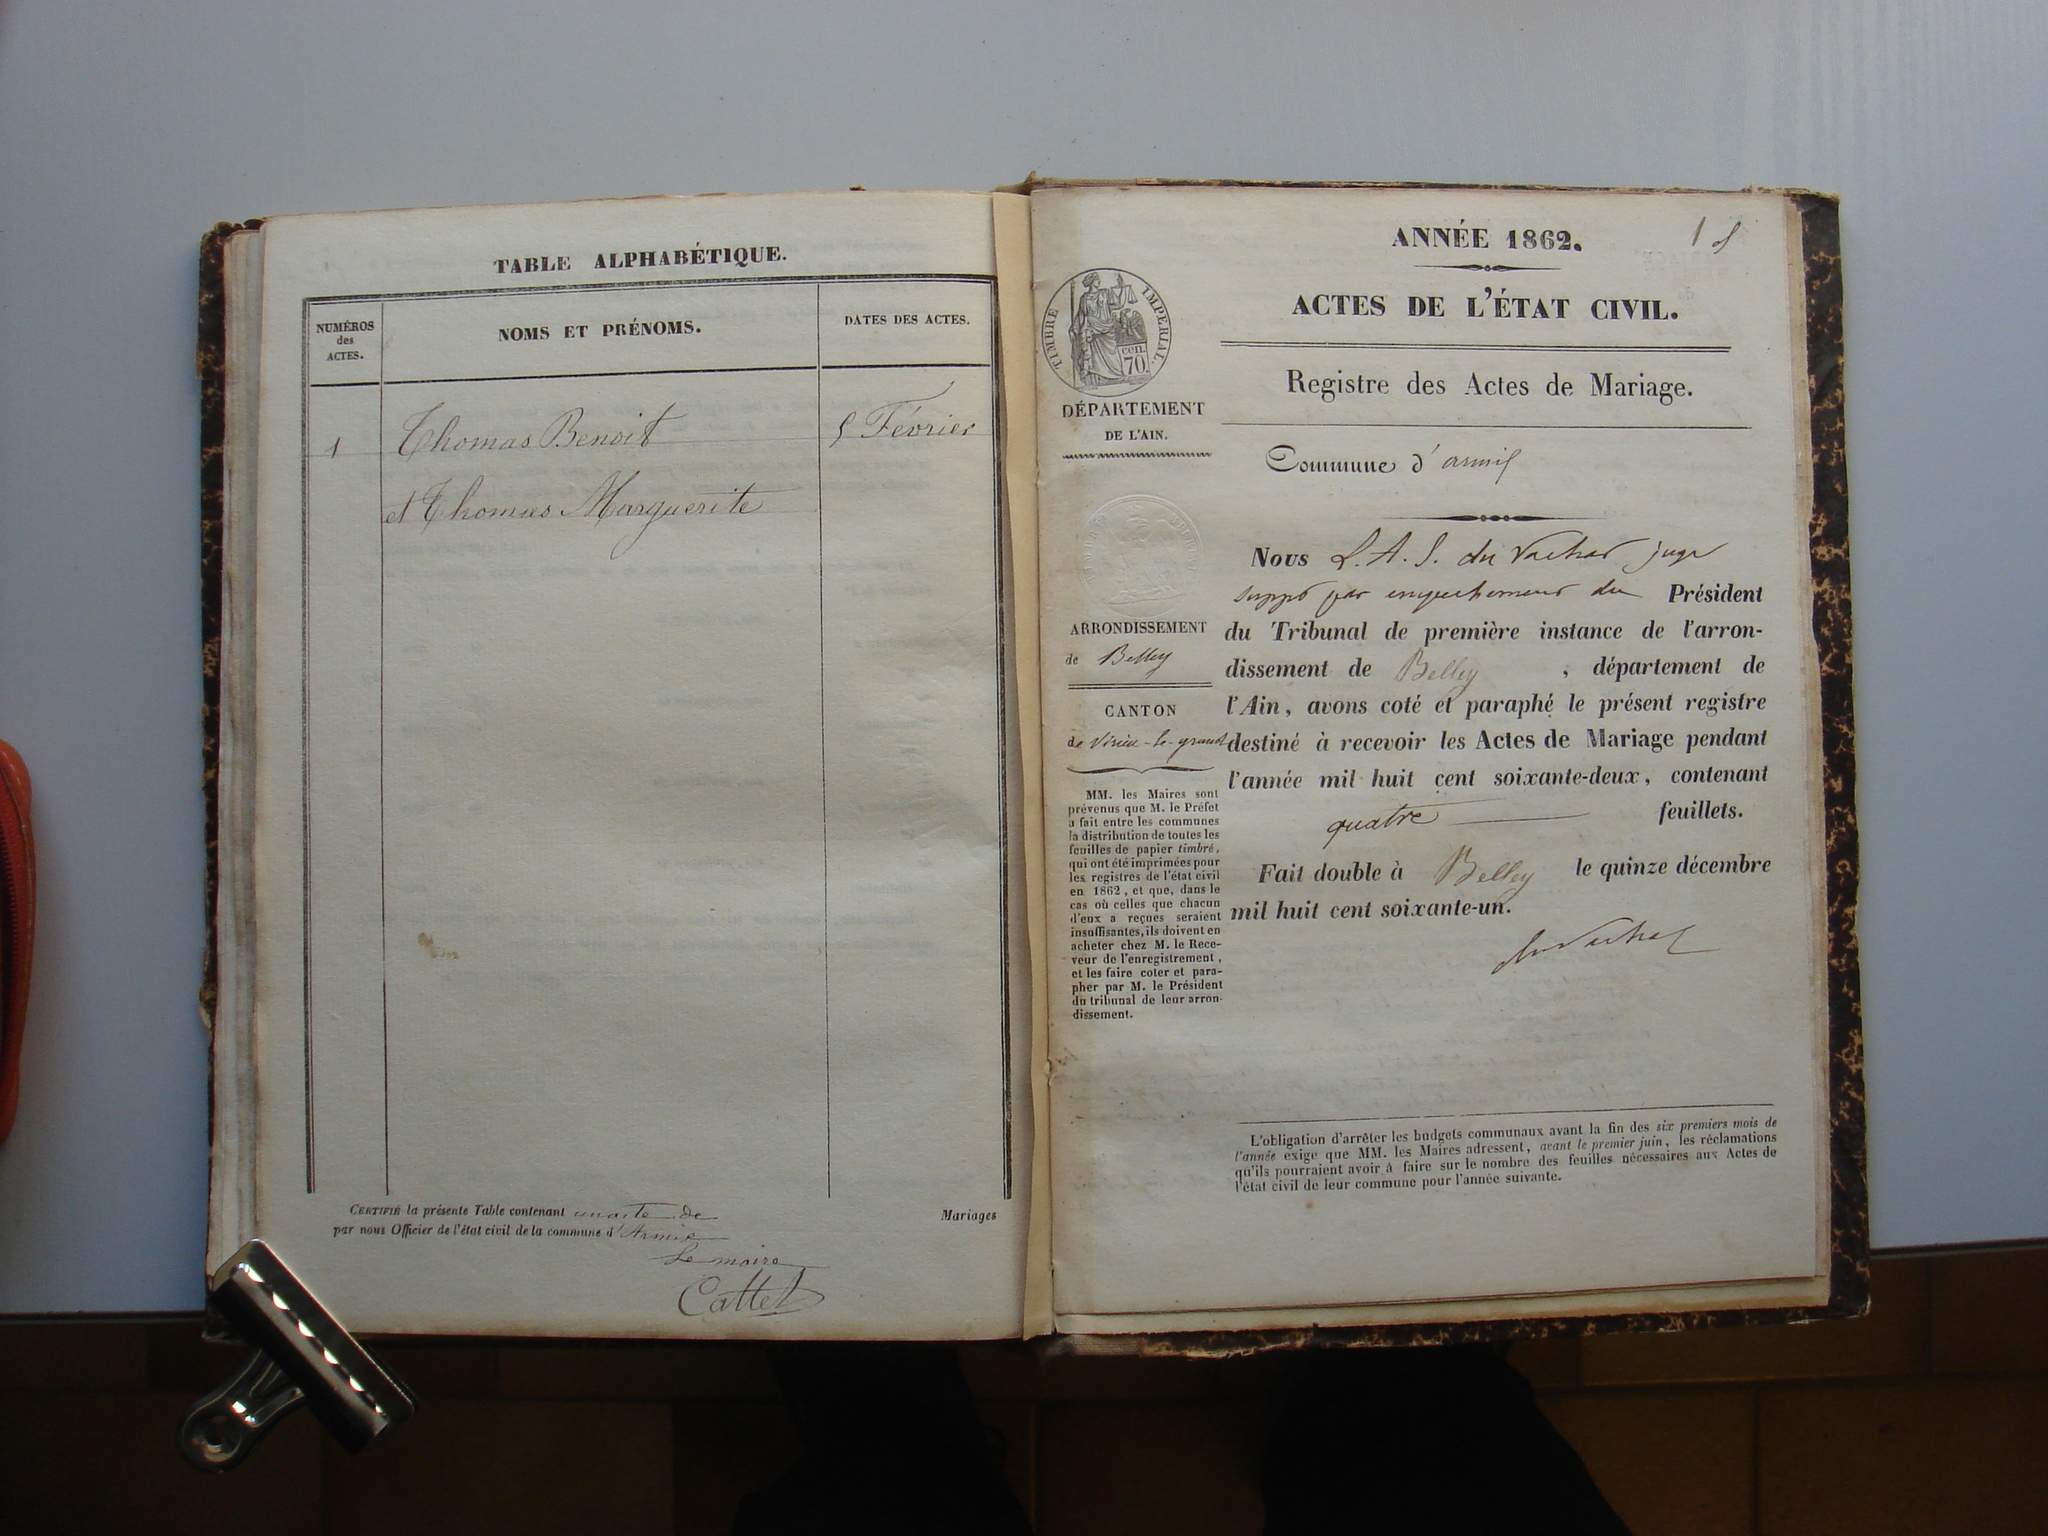 TABLE ALPHABÉTIQUE.
NUMÉROS
des
ACTES.
NOMS ET PRÉNOMS.
DATES DES ACTES.
1 Thomas Benoit 5 Février
et Thomas Marguerite
CERTIFIÉ la présente Table contenant un acte de Mariages
par nous Officier de l'état civil de la commune d'Armix
Le maire
Cattet
ANNÉE 1862.
1
ACTES DE L'ÉTAT CIVIL.
TIMBRE IMPERIAL.
CENT.
70
Registre des Actes de Mariage.
DÉPARTEMENT
DE L'AIN.
Commune d'armix
ARRONDISSEMENT
de Belley
CANTON
de Virieu-le-grand
MM. les Maires sont
prévenus que M. le Préfet
a fait entre les communes
la distribution de toutes les
feuilles de papier timbré,
qui ont été imprimées pour
les registres de l'état civil
en 1862, et que, dans le
cas où celles que chacun
d'eux a reçues seraient
insuffisantes, ils doivent en
acheter chez M. le Rece-
veur de l'enregistrement,
et les faire coter et para-
pher par M. le Président
du tribunal de leur arron-
dissement.
Nous L. A. S. du Vachat juge
supp par empechement du Président
du Tribunal de première instance de l'arron-
dissement de Belley, département de
l'Ain, avons coté et paraphé le présent registre
destiné à recevoir les Actes de Mariage pendant
l'année mil huit cent soixante-deux, contenant
quatre feuillets.
Fait double à Belley le quinze décembre
mil huit cent soixante-un.
du Vachat
L'obligation d'arrêter les budgets communaux avant la fin des six premiers mois de
l'année exige que MM. les Maires adressent, avant le premier juin, les réclamations
qu'ils pourraient avoir à faire sur le nombre des feuilles nécessaires aux Actes de
l'état civil de leur commune pour l'année suivante.